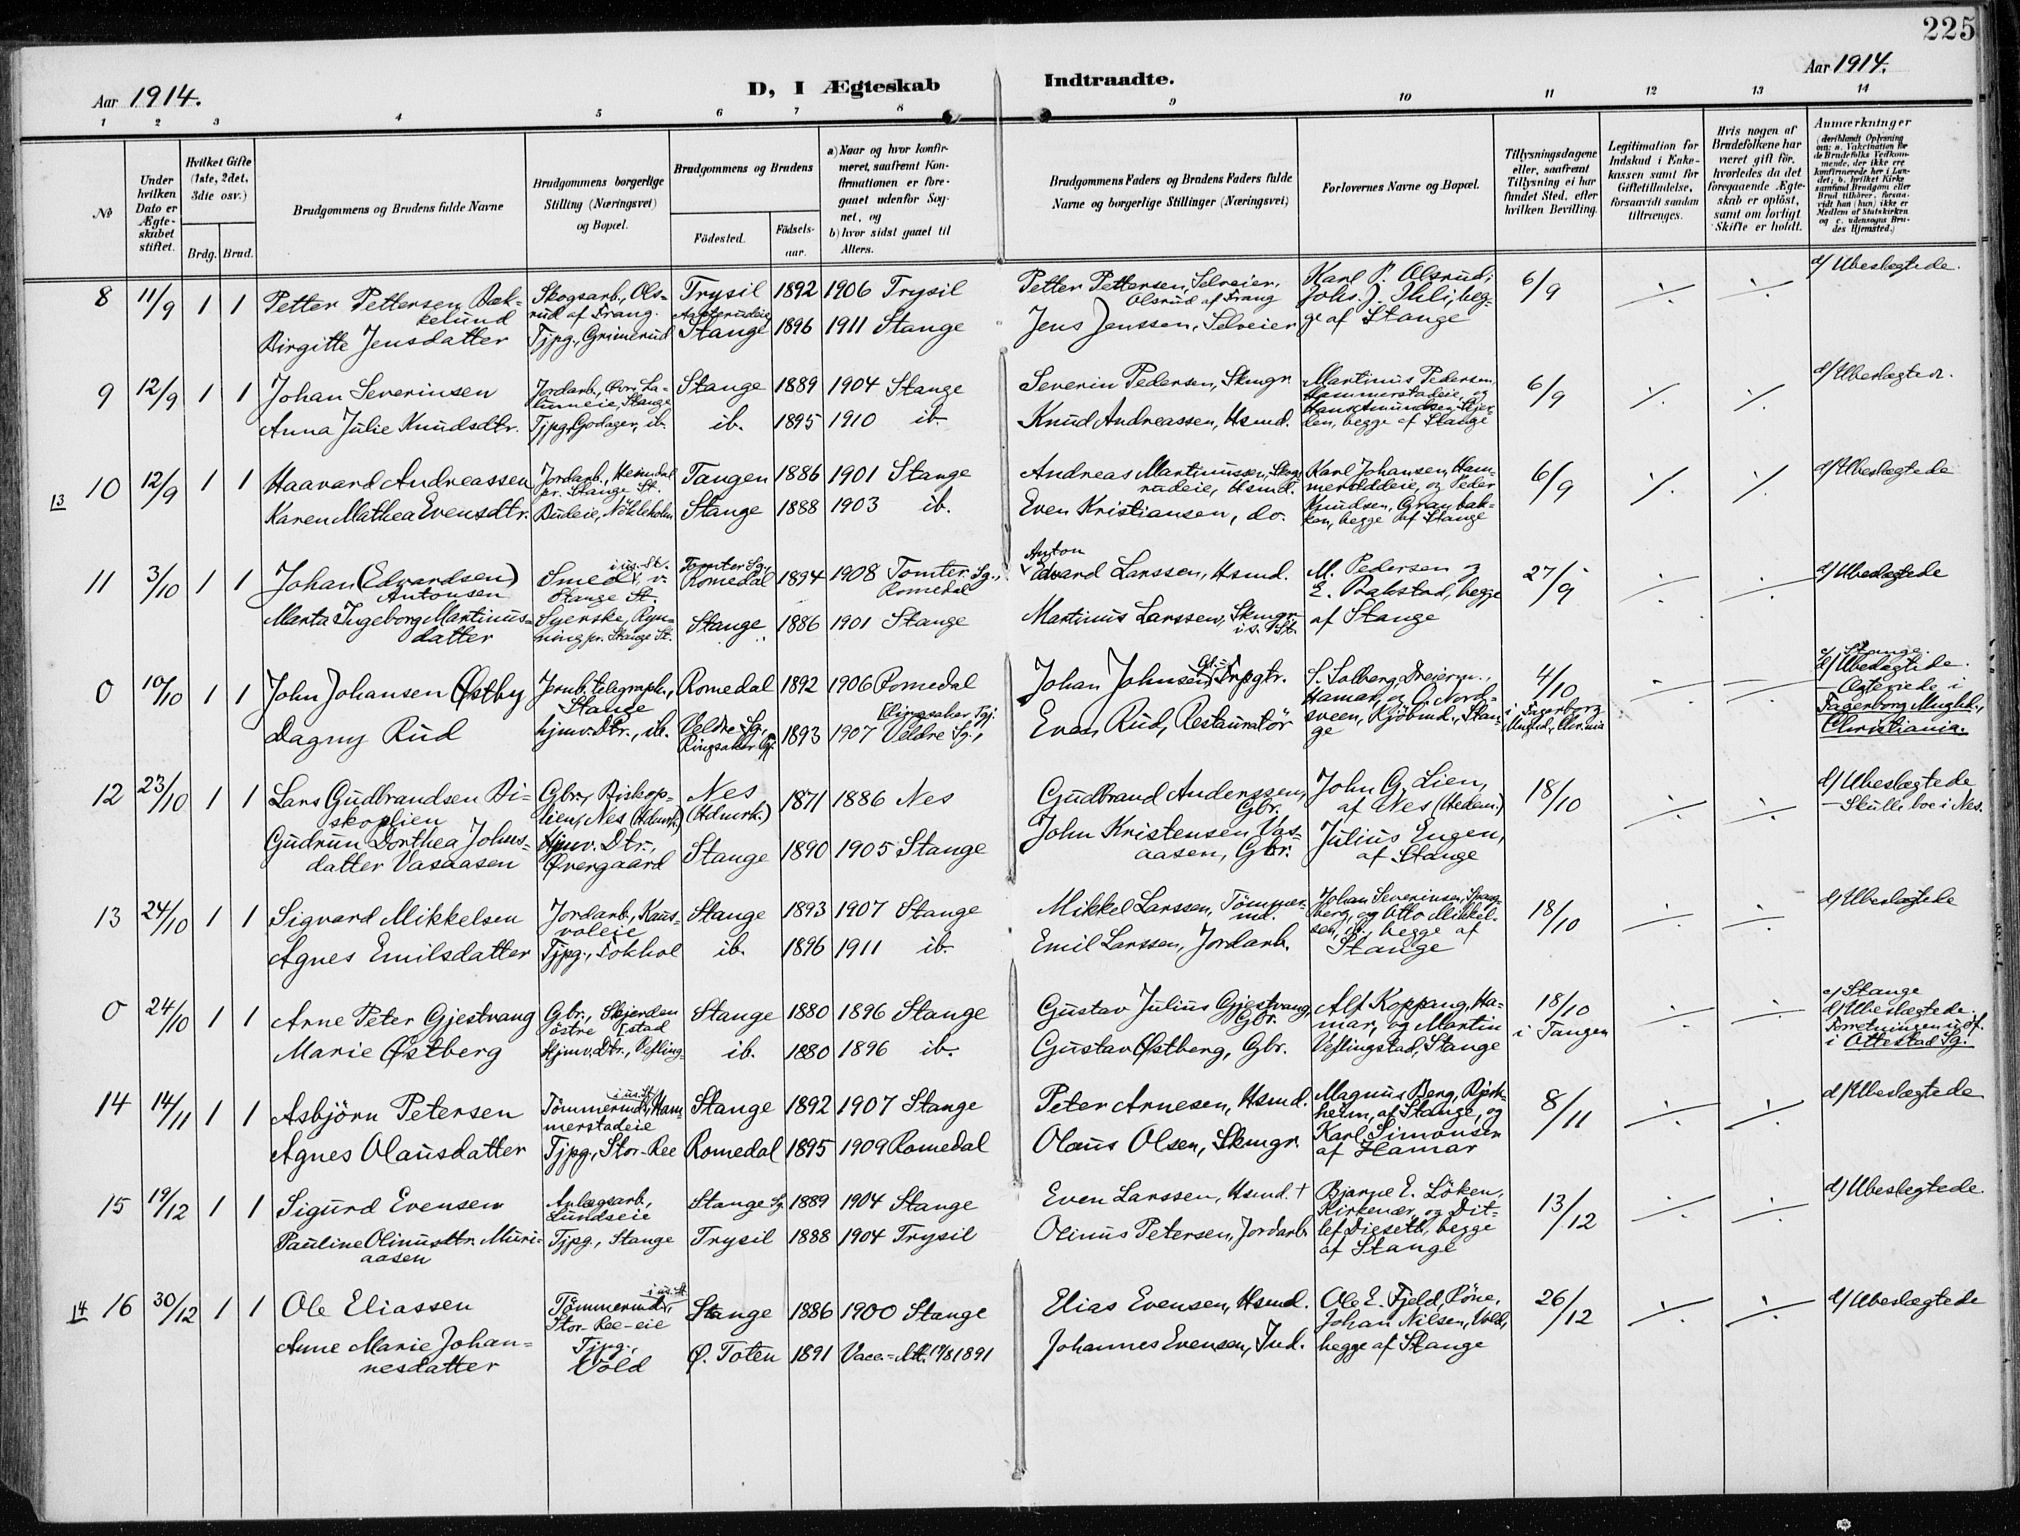 225
Aar 1914.
D, I Ægteskab Indtraadte.
Aar 1914.
1 2 3 4 5 6 7 8 9 10 11 12 13 14
No
Under hvilken Dato er Ægteskabet stiftet.
Hvilket Gifte (1ste, 2det, 3die osv.)
Brdg. Brud.
Brudgommens og Brudens fulde Navne
Brudgommens borgerlige Stilling (Næringsvei) og Bopæl.
Brudgommens og Brudens
Fødested.
Fødselsaar.
a) Naar og hvor konfirmeret, saafremt Konfirmationen er foregaaet udenfor Sognet, og
b) hvor sidst gaaet til Alters.
Brudgommens Faders og Brudens Faders fulde Navne og borgerlige Stillinger (Næringsvei)
Forlovernes Navne og Bopæl.
Tillysningsdagene eller, saafremt Tillysning ei har fundet Sted, efter hvilken Bevilling.
Legitimation for Indskud i Enkekassen samt for Giftetilladelse, forsaavidt saadan tiltrænges.
Hvis nogen af Brudefolkene har været gift før, hvorledes da det foregaaende Ægteskab er opløst, samt om lovligt Skifte er holdt.
Anmærkninger
(deriblandt Oplysning om: a. Vakcination for de Brudefolks Vedkommende, der ikke ere konfirmerede her i Landet; b. hvilket Kirkesamfund Brudgom eller Brud tilhører, forsaavidt han (hun) ikke er Medlem af Statskirken og c. udensogns Brudes Hjemsted.)
8 11/9 1 1 Petter Pettersen Bækkelund Skogsarb., Olsrud af Trang. Trysil 1892 1906 Trysil Petter Pettersen, Selveier, Olsrud af Trang Karl P. Olsrud; Johs. J. Ihli, begge af Stange 6/9 ./. ./. d/ Ubeslegtede.
Birgitte Jensdatter Tjpg., Grimerud Stange 1896 1911 Stange Jens Jenssen, Selveier
9 12/9 1 1 Johan Severinsen Jordarb., Stange Stange 1889 1904 Stange Severin Pedersen, Skmgr. Martinus Pedersen, Hammerstadeie, og Hans Amundsen, begge af Stange 6/9 ./. ./. d/ Ubeslegtede.
Anna Julie Knudsdtr. Tjpg., Godager, ib. ib. 1895 1910 ib. Knud Andreassen, Hsmd.
13 10 12/9 1 1 Haavard Andreassen Jordarb., Heimdal pr. Stange St. Tangen 1886 1901 Stange Andreas Martinussen, Hsmd. Karl Johansen, og Peder Knudsen, Granbakken, begge af Stange 6/9 ./. ./. d/ Ubeslegtede
Karen Mathea Evensdtr. Budeie, Nökleholm Stange 1888 1903 ib. Even Kristiansen, do.
11 3/10 1 1 Johan (Edvardsen) Antonsen Smed i us. St. v. Stange St. Tomter Sg., Romedal 1894 1908 Tomter Sg., Romedal Anton Edvard Larssen, Hsmd. M. Pedersen og E. Bakstad, begge af Stange 27/9 ./. ./. d/ Ubeslegtede
Marta Ingeborg Martinusdatter Syerske, Rynning pr. Stange St. Stange 1886 1901 Stange Martinus Larssen, Skmgr. i s. St.
0 10/10 1 1 John Johansen Østby Jernb. telegraph., Stange Romedal 1892 1906 Romedal Johan Johnsen, S. Solberg, Dreierm., Hamar, og O. Nordsveen, Kjöbmd., Stange 4/10 i Fagerborg Mnghd., Chr.nia ./. ./. c/ Stange. d/ Ubeslegtede. — Ægteviede i Fagerborg Mnghd., Christiania.
Dagny Rud hjmv. Dtr., ib. Veldre Sg., Ringsaker Pgj. 1893 1907 Veldre Sg., Ringsaker Pgj. Even Rud, Restauratör
12 23/10 1 1 Lars Gudbrandsen Biskoplien Gbr., Biskoplien, Nes (Hdmrk.) Nes (Hdmrk.) 1871 1886 Nes Gudbrand Anderssen, Gbr. John G. Lien, af Nes (Hedem.) Julius Engen, af Stange 18/10 ./. ./. d/ Ubeslegtede — Skulle boe i Nes.
Gudrun Dorthea Johnsdatter Vasaasen Hjmv. Dtr., Øvergaard Stange 1890 1905 Stange John Kristensen Vasaasen, Gbr.
13 24/10 1 1 Sigvard Mikkelsen Jordarb., Kausvoleie Stange 1893 1907 Stange Mikkel Larssen, Tömmermd. Johan Severinsen, og Otto Mikkelsen, ib., begge af Stange 18/10 ./. ./. d/ Ubeslegtede
Agnes Emilsdatter Tjpg., Fokhol ib. 1896 1911 ib. Emil Larssen, Jordarb.
0 24/10 1 1 Arne Peter Gjestvang Gbr., Skjerden östre Stange 1880 1896 Stange Gustav Julius Gjestvang, Gbr. Alf Koppang, Hamar, og Martin Veflingstad, Stange 18/10 i Tangen ./. ./. c/ Stange d/ Ubeslegtede. Forretningen udf. i Ottestad Sg.
Marie Østberg Hjmv. Dtr., Vefling ib. 1880 1896 ib. Gustav Østberg, Gbr.
14 14/11 1 1 Asbjörn Petersen Tömmermd. i us. St., Hammerstadeie Stange 1892 1907 Stange Peter Arnesen, Hsmd. Magnus Berg, Björkheim, af Stange, og Karl Simonsen af Hamar 8/11 ./. ./. d/ Ubeslegtede
Agnes Olausdatter Tjpg., Stor-Ree Romedal 1895 1909 Romedal Olaus Olsen, Skmgr.
15 19/12 1 1 Sigurd Evensen Anlægsarb., Lundseie Stange Sg. 1889 1904 Stange Even Larssen, Hsmd. † Bjarne E. Löken, Kirkenær, og Ditlef Dieseth, begge af Stange 13/12 ./. ./. d/ Ubeslegtede.
Pauline Olinusdtr. Muriaasen Tjpg., Stange Trysil 1888 1904 Trysil Olinus Petersen, Jordarb.
14 16 30/12 1 1 Ole Eliassen Tömmermd. i us. St., Stor-Ree-eie Stange 1886 1900 Stange Elias Evensen, Hsmd. Ole E. Fjeld, Röne, Johan Nilsen, Vold, begge af Stange 26/12 ./. ./. d/ Ubeslegtede
Anne Marie Johannesdatter Tjpg., Vold Ø. Toten 1891 Vacc.-Att. 17/8 1891 Johannes Evensen, Ind.